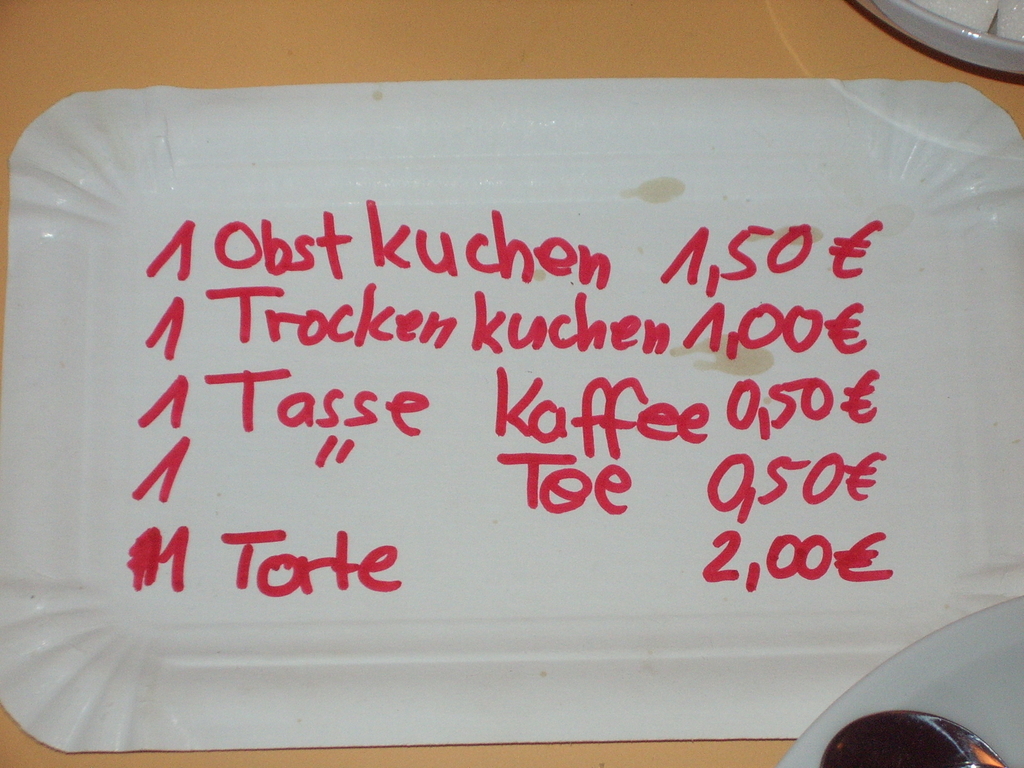 1 Obstkuchen 1,50 €
1 Trockenkuchen 1,00€
1 Tasse Kaffee 0,50€
1 " Tee 0,50€
1 Torte 2,00€